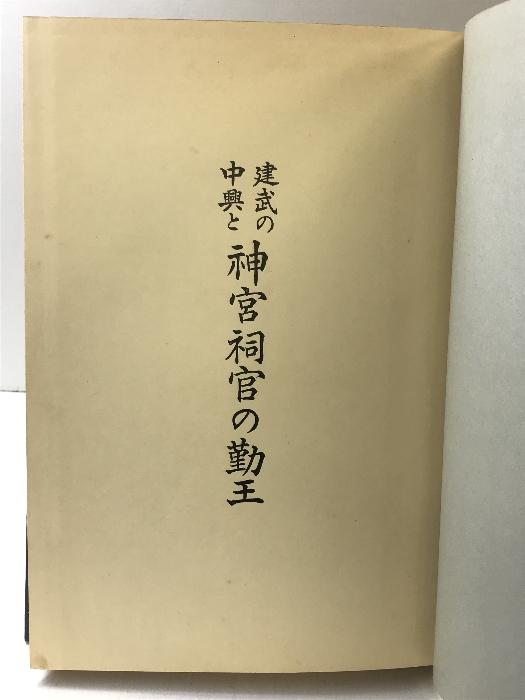 建武の
中興と
神宮祠官の勤王